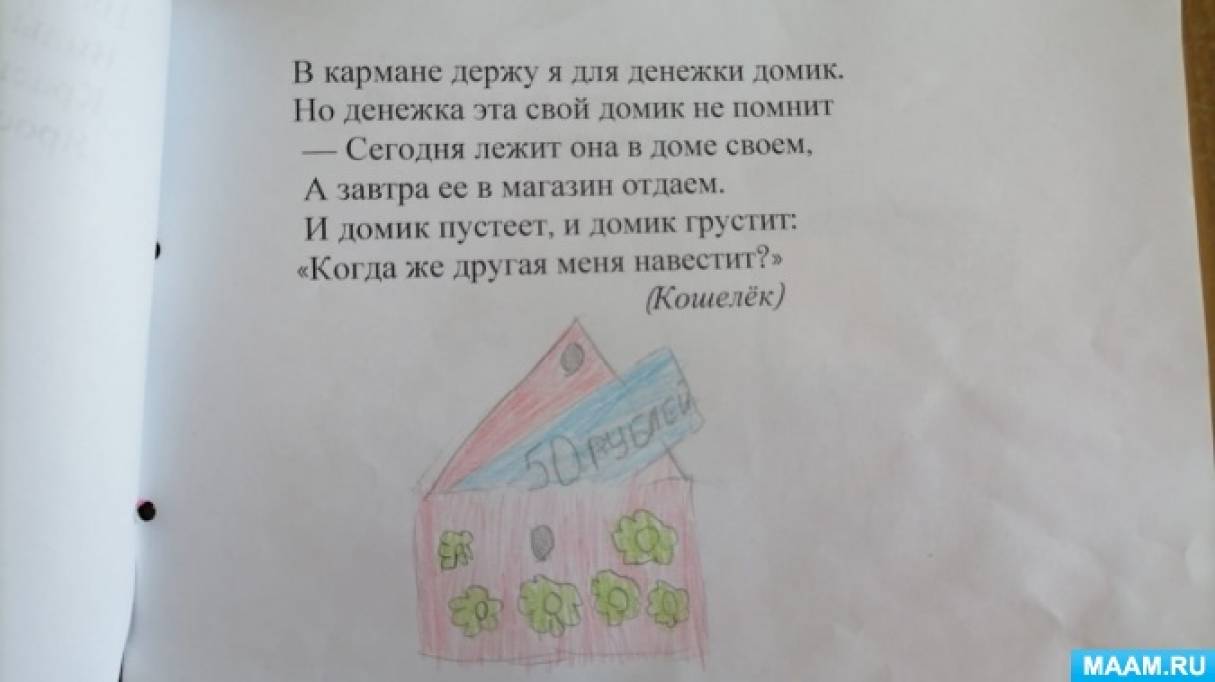 В кармане держу я для денежки домик.
Но денежка эта свой домик не помнит
— Сегодня лежит она в доме своем,
А завтра ее в магазин отдаем.
И домик пустеет, и домик грустит:
«Когда же другая меня навестит?»
(Кошелёк)
50 РУБЛЕЙ
MAAM.RU